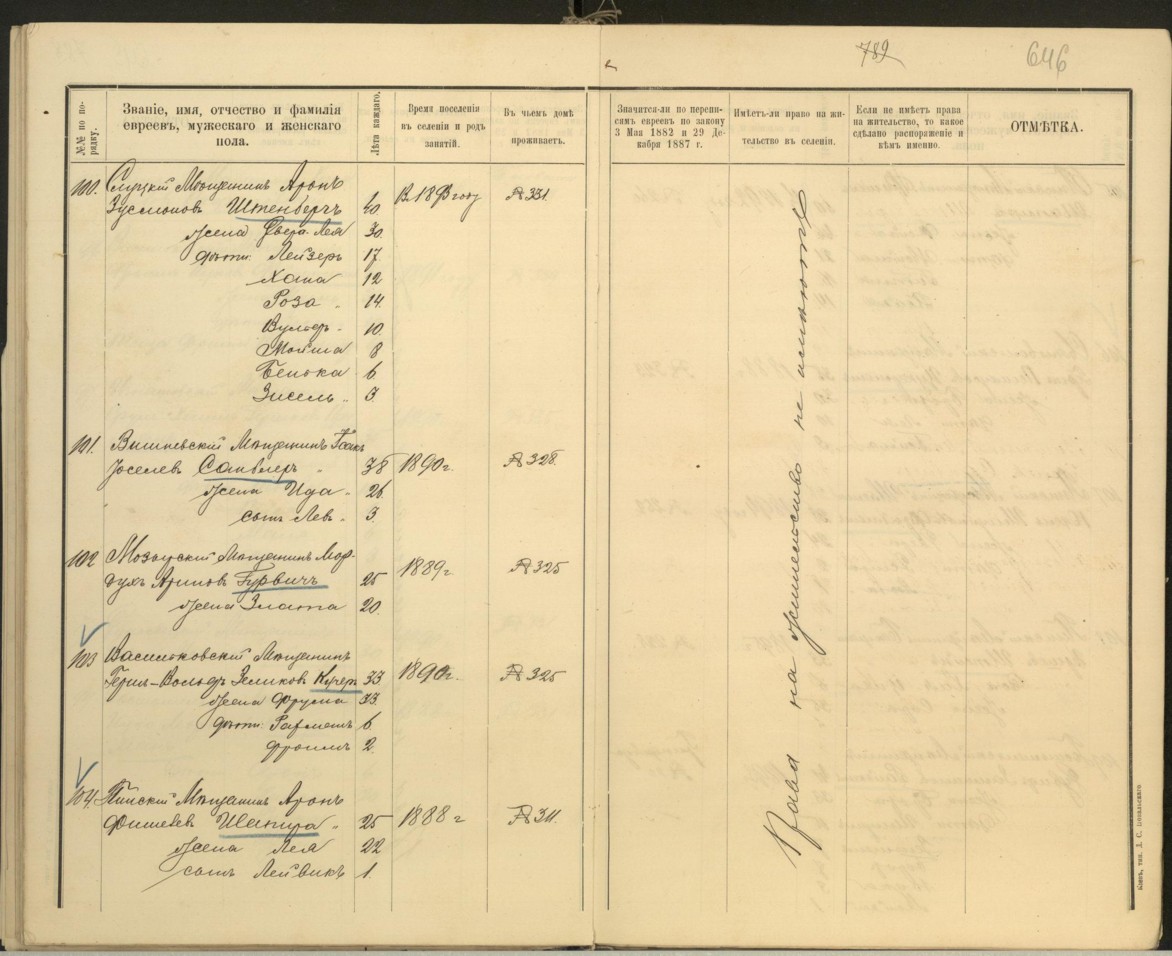 789
646
№№ по по-
рядку.
Званіе, имя, отчество и фамилія
евреевъ, мужескаго и женскаго
пола.
Лѣта каждаго.
Время поселенія
въ селеніи и родъ
занятій.
Въ чьемъ домѣ
проживаетъ.
Значится-ли по перепи-
сямъ евреевъ по закону
3 Мая 1882 и 29 Де-
кабря 1887 г.
Имѣетъ-ли право на жи-
тельство въ селеніи.
Если не имѣетъ права
на жительство, то какое
сдѣлано распоряженіе и
кѣмъ именно.
ОТМѢТКА.
100. Слуцкій Мѣщанинъ Аронъ
Штенбергъ 40 В 1893 году № 331.
жена Двера Лея 30.
дѣти: Лейзеръ 17.
Хана 12
Роза 14.
Вульфъ 10.
Мойша 8
Бенька 6
Зисель 3.
101. Вишневскій Мѣщанинъ
Іоселев 38 1890 г. № 328.
жена Ида 26.
сынъ Лев 3.
102 Мозырскій Мѣщанинъ Мор-
духъ Гурвичъ 25 1889 г № 325
жена Злата 20.
103 Васильковскій Мѣщанинъ
Зеликов Кучеръ 33 1890 г. № 325
жена Фрума 33.
дѣти: 6
Фроимъ 2.
104 Пинскій Мѣщанинъ Аронъ
Шапиро 25 1888 г № 311.
жена Лея 22
сынъ Лейвикъ 1.
Права на жительство не имѣютъ